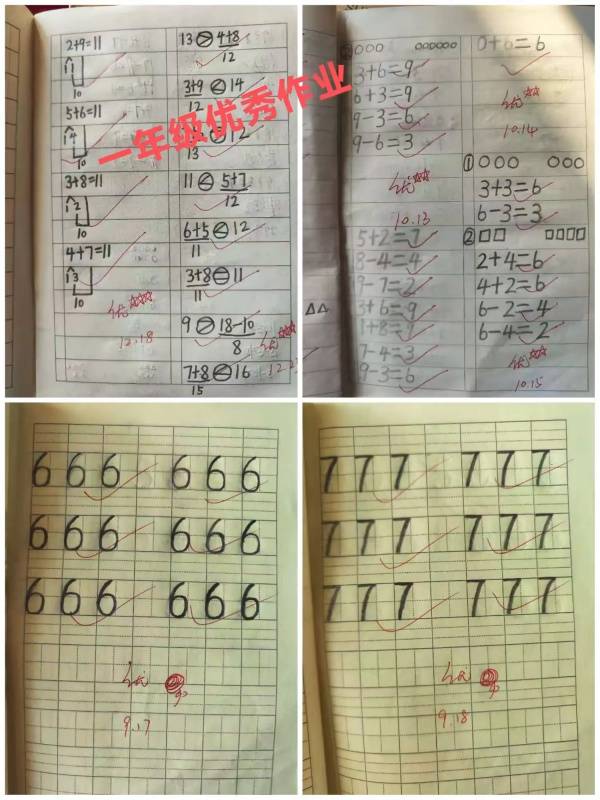 一年级优秀作业
2+9=11
1 1
10
5+6=11
1 4
10
3+8=11
1 2
10
4+7=11
1 3
10
优
12.18
13 > 4+8
12
3+9 < 14
12
12
13
11 < 5+7
12
6+5 < 12
11
3+8 = 11
11
9 > 18-10
8
优
7+8 < 16
15
3+6=9
6+3=9
9-3=6
9-6=3
优
10.13
5+2=7
8-4=4
9-7=2
3+6=9
1+8=9
7-4=3
9-3=6
0+6=6
优
10.14
①
3+3=6
6-3=3
②
2+4=6
4+2=6
6-2=4
6-4=2
优
10.15
6 6 6 6 6 6
6 6 6 6 6 6
6 6 6 6 6 6
优
9.17
7 7 7 7 7 7
7 7 7 7 7 7
7 7 7 7 7 7
优
9.18